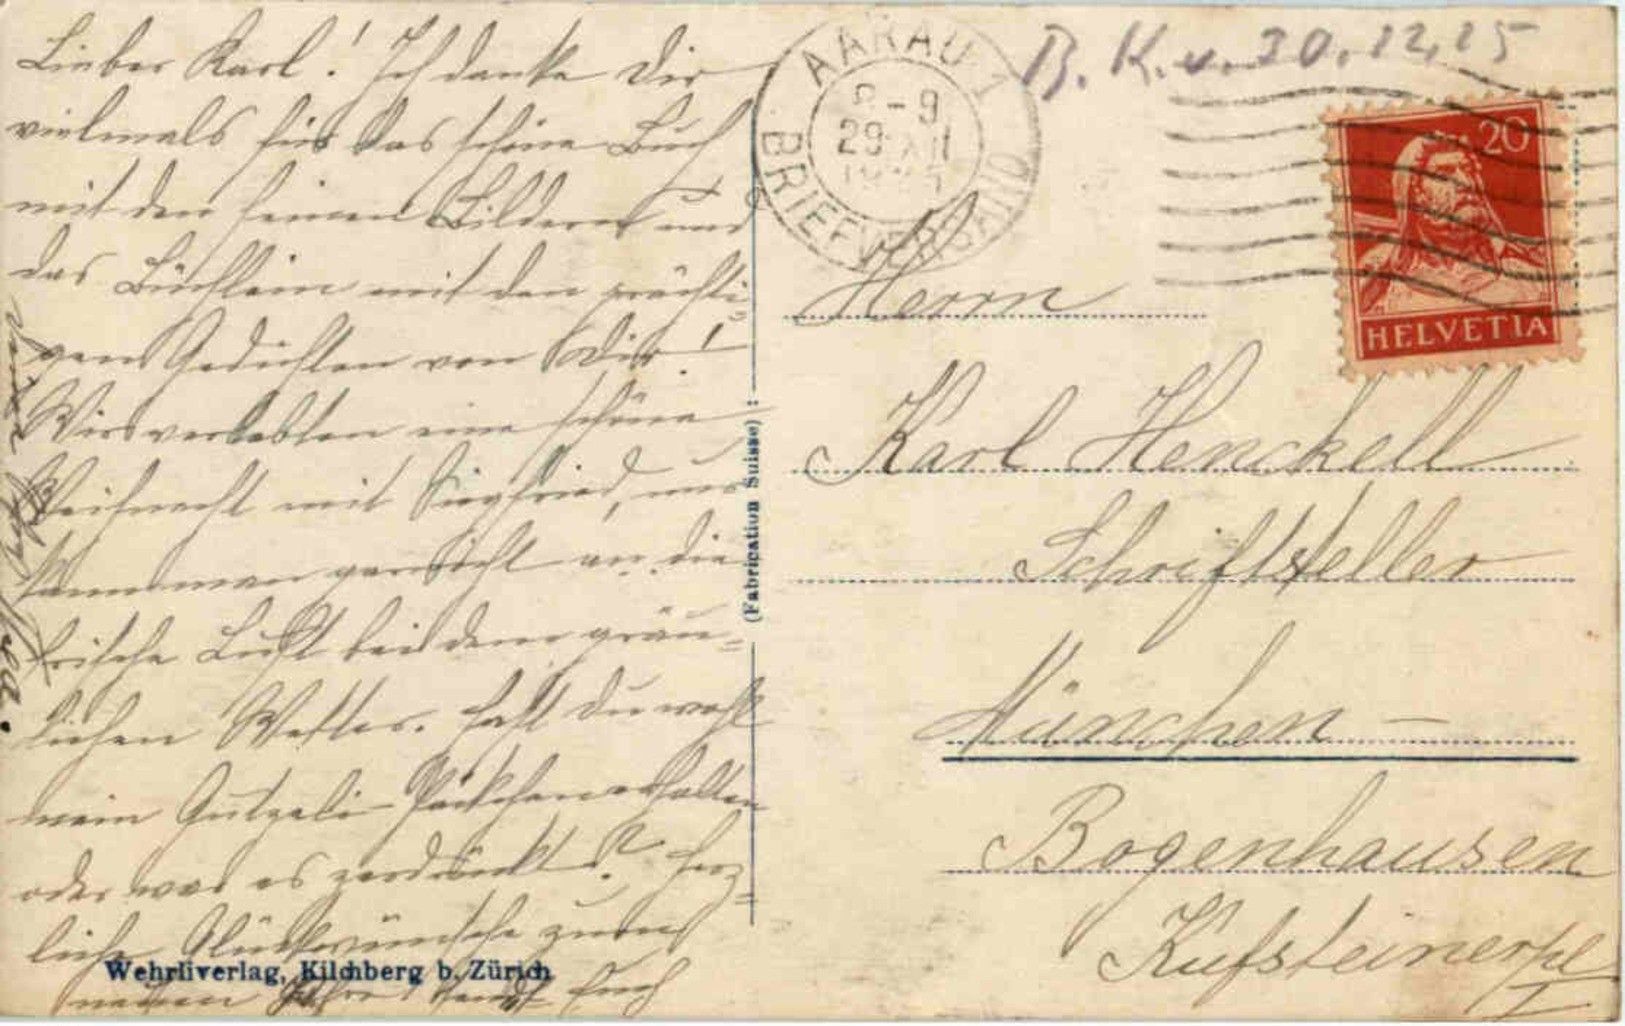 Lieber Karl! Ich danke Dir
vielmals für das schöne Buch
mit den feinen Bildern und
das Büchlein mit den prächti-
gen Gedichten von Dir!
Wir verlebten eine schöne
Weihnacht mit Siegfried, nur
kann man gar nicht an die
frische Luft bei dem gräu-
lichen Wetter. Hast du wohl
mein Gutzeli-Päckchen erhalten
oder war es zerdrückt? Herz-
liche Glückwünsche zum
neuen Jahr sendet Euch
Wehrliverlag, Kilchberg b. Zürich
(Fabrication Suisse)
AARAU 1
8-9
29 XII
BRIEFVERSAND
B. K. v. 30.12.25
20
HELVETIA
Herrn
Karl Henckell
Schriftsteller
München —
Bogenhausen
Kufsteinerpl
I